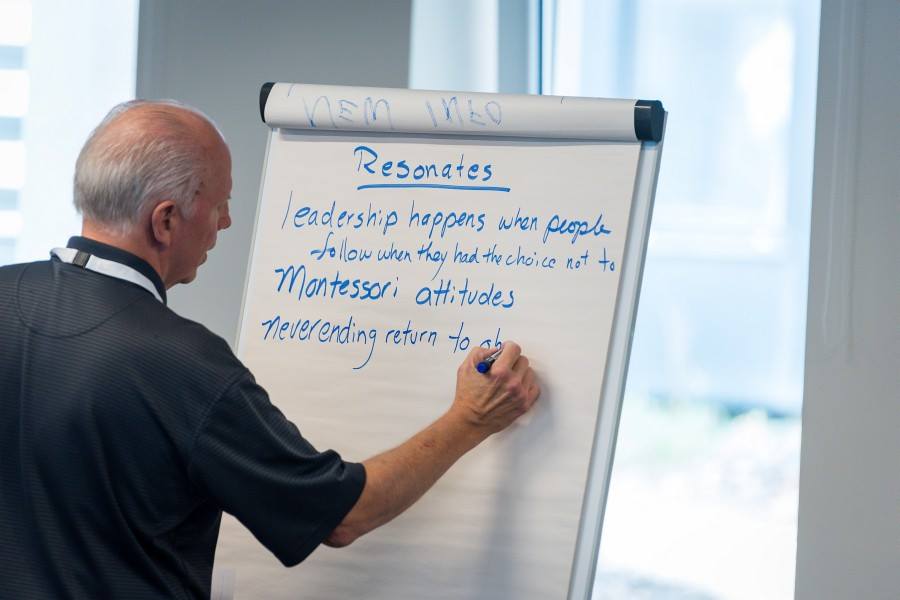 NEW INFO
Resonates
leadership happens when people
follow when they had the choice not to
Montessori attitudes
neverending return to ob